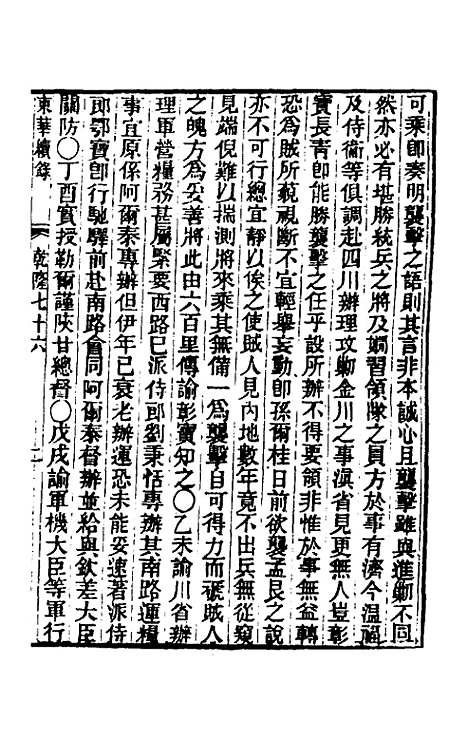 可乘卽奏明襲擊之語則其言非本誠心且襲擊雖與進勦不同
然亦必有堪勝統兵之將及嫺習領隊之員方於事有濟今溫福
及侍衞等俱調赴四川辦理攻勦金川之事滇省見更無人豈彰
寶長靑卽能勝襲擊之任乎設所辦不得要領非惟於事無益轉
恐爲賊所藐視斷不宜輕舉妄動卽孫爾桂日前欲襲孟艮之說
亦不可行總宜靜以俟之使賊人見內地數年竟不出兵無從窺
見端倪難以揣測將來乘其無備一爲襲擊自可得力而褫賊人
之魄方爲妥善將此由六百里傳諭彰寶知之〇乙未諭川省辦
理軍營糧務甚屬緊要西路已派侍郞劉秉恬專辦其南路運糧
事宜原係阿爾泰專辦但伊年已衰老辦運恐未能妥速著派侍
郞鄂寶卽行馳驛前赴南路會同阿爾泰督辦並給與欽差大臣
關防〇丁酉實授勒爾謹陝甘總督〇戊戌諭軍機大臣等軍行
東華續錄 乾隆七十六